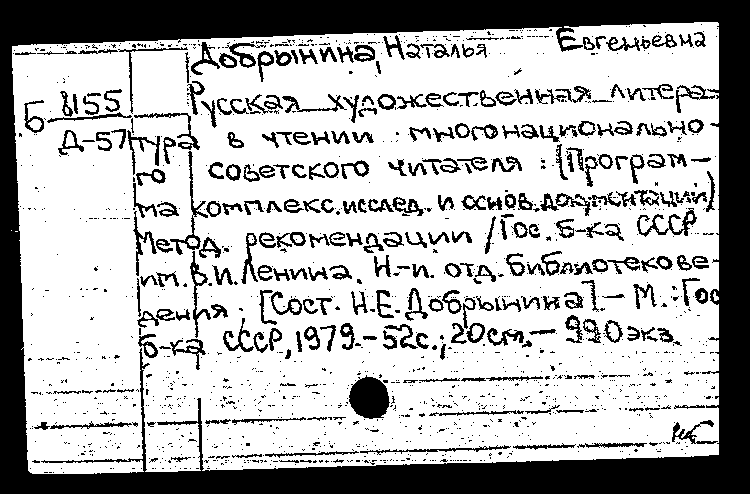 Добрынина, Наталья Евгеньевна
Б 8155
Д-57
Русская художественная литера-
тура в чтении многонационально-
го советского читателя : (Програм-
ма комплекс. исслед. и основ. документации)
Метод. рекомендации / Гос. б-ка СССР
им. В.И.Ленина. Н.-и. отд. библиотекове-
дения ; [Сост. Н.Е.Добрынина] – М. : Гос
б-ка СССР, 1979. – 52с. ; 20см. – 990экз.